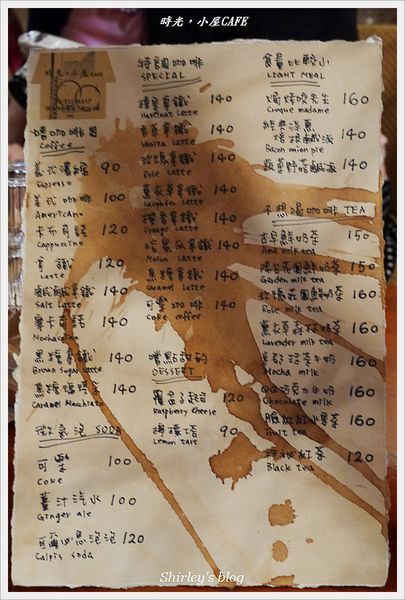 時光，小屋CAFE
時光，小屋CAFE
咖啡因
Coffee
義式濃縮 90
Espresso
美式咖啡 100
American
卡布奇諾 120
Cappuccino
拿鐵 120
Latte
鹹鹹拿鐵 140
Salt Latte
摩卡奇諾 140
Mochaccino
黑糖拿鐵 140
Brown Sugar Latte
焦糖瑪琪朵 140
Caramel Macchiato
微氣泡 SODA
可樂 100
Coke
薑汁汽水 100
Ginger ale
可爾必思泡泡 120
Calpis soda
特調咖啡
SPECIAL
榛果拿鐵 140
Hazelnut Latte
香草拿鐵 140
Vanilla Latte
玫瑰拿鐵 140
Rose Latte
薰衣草拿鐵 140
Lavender Latte
橙香拿鐵 140
Orange Latte
哈蜜瓜拿鐵 140
Melon Latte
焦糖拿鐵 140
Caramel Latte
可樂咖啡 140
Coke coffee
嚐點甜的
DESSERT
覆盆子起司 120
Raspberry Cheese
檸檬塔 90
Lemon Tart
食量比較小
LIGHT MEAL
焗烤咬先生 160
Croque madame
經典洋蔥
培根鹹派 140
Bacon mien pie
蔬菜野菇鹹派 140
不想喝咖啡 TEA
古早鮮奶茶 150
And milk tea
陽台花園鮮奶茶 150
Garden milk tea
玫瑰花園鮮奶茶 160
Rose milk tea
薰衣草森林奶茶 160
Lavender milk tea
摩卡牛奶 160
Mocha milk
QQ巧克力牛奶 160
Chocolate milk
臉紅紅水果茶 160
Fruit tea
神秘紅茶 120
Black tea
Shirley's blog